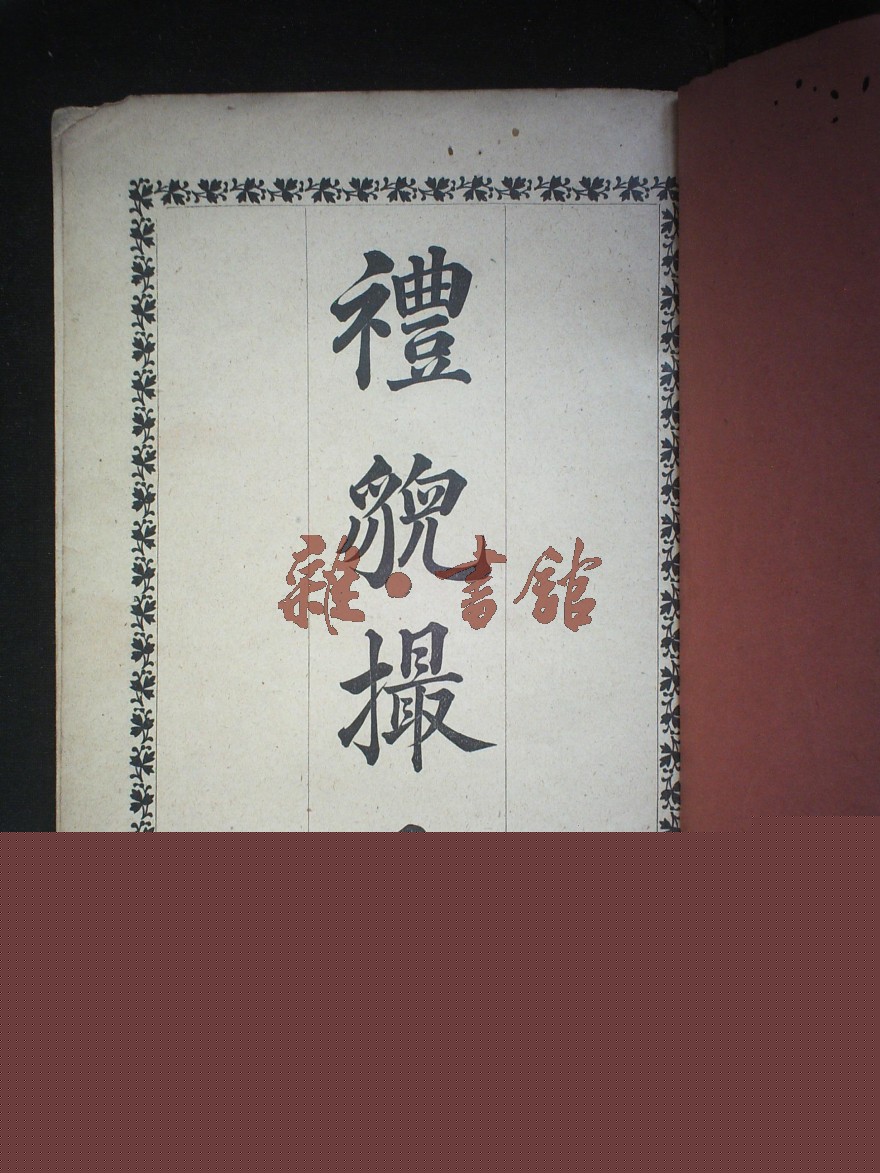 禮貌撮
雜·書館